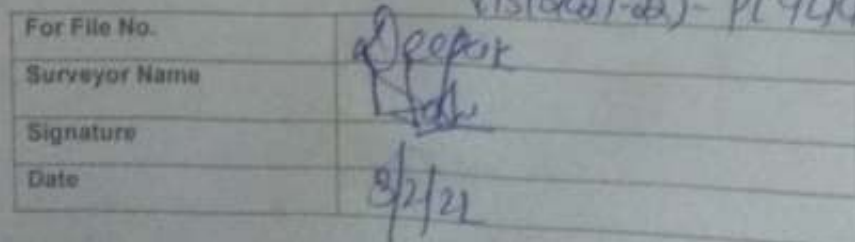 For File No.
Surveyor Name Deepak
Signature
Date 8/2/22